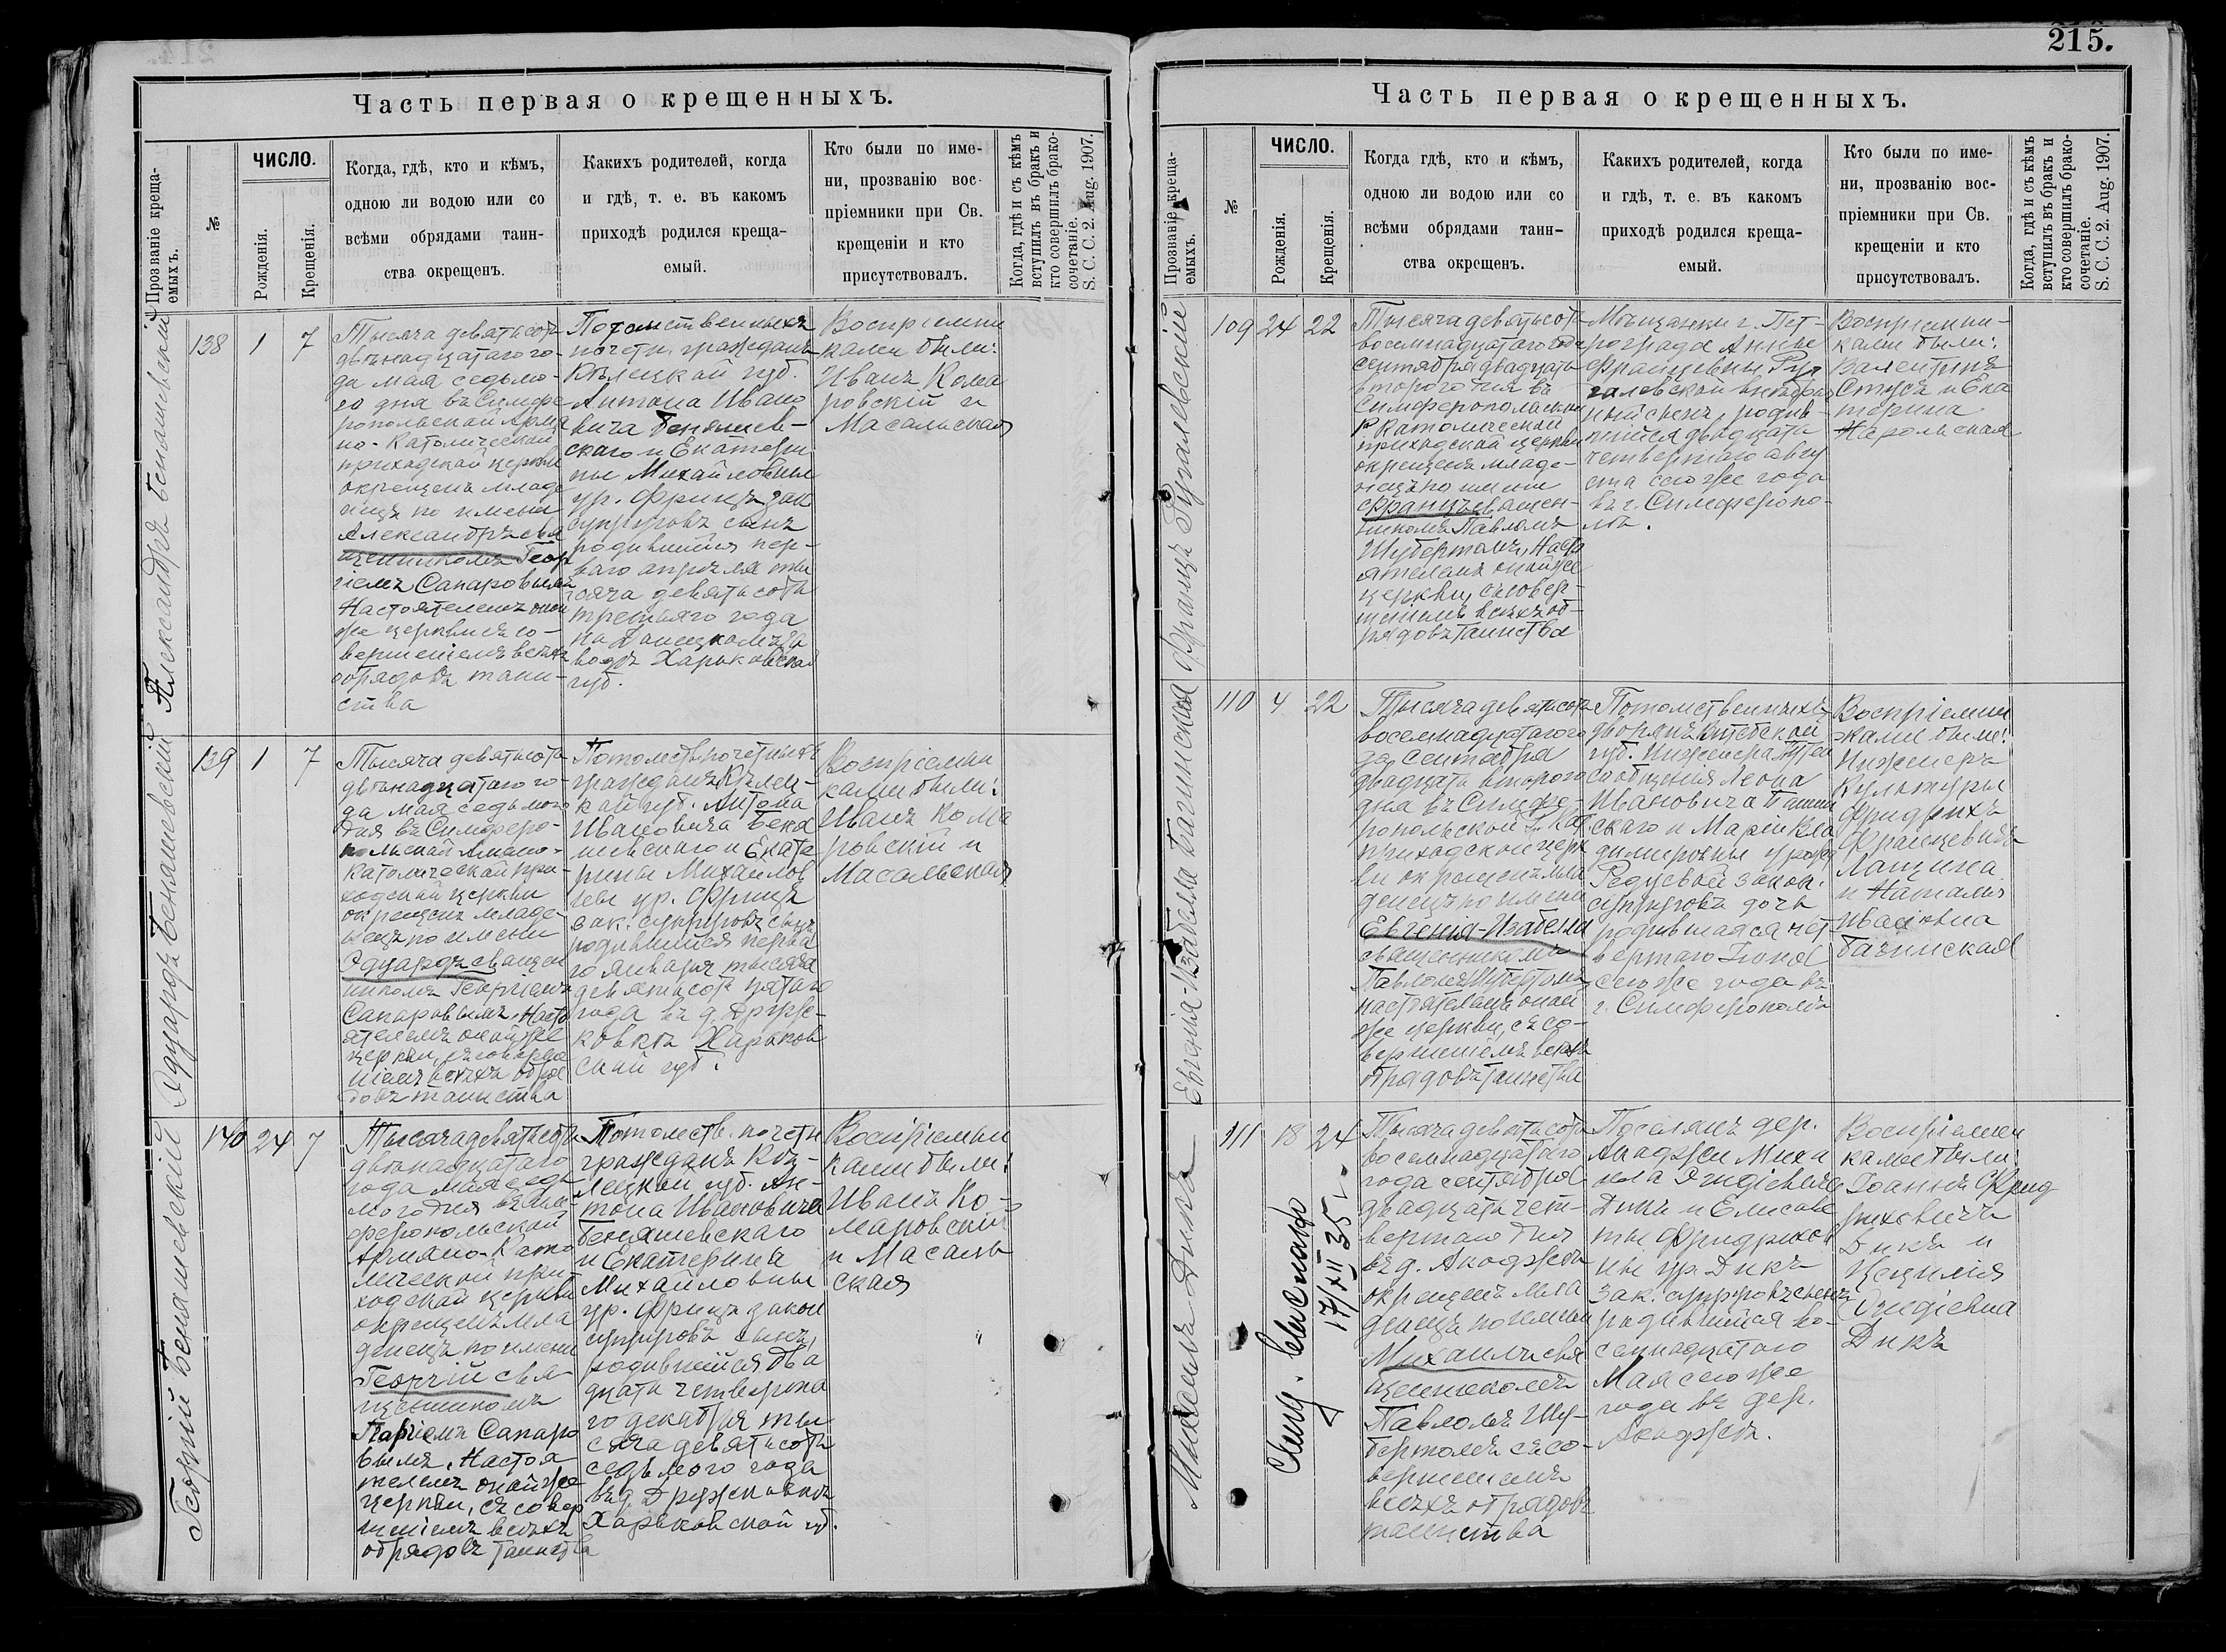 215.
Часть первая о крещенныхъ.
Прозваніе креща-
емыхъ.
№
ЧИСЛО.
Рожденія.
Крещенія.
Когда, гдѣ, кто и кѣмъ,
одною ли водою или со
всѣми обрядами таин-
ства окрещенъ.
Какихъ родителей, когда
и гдѣ, т. е. въ какомъ
приходѣ родился креща-
емый.
Кто были по име-
ни, прозванію вос-
пріемники при Св.
крещеніи и кто
присутствовалъ.
Когда, гдѣ и съ кѣмъ
вступилъ въ бракъ и
кто совершилъ брако-
сочетаніе.
S. C. C. 2. Aug. 1907.
Александръ Бенашевскій
138
1
7
Тысяча девятьсотъ
двѣнадцатаго го-
да мая седьмо-
го дня въ Симфе
ропольской Армя
но-Католической
приходской церкви
окрещенъ младе
нецъ по имени
Александръ свя
щенникомъ Геор
гіемъ Сапаровымъ
Настоятелемъ оной
же церкви съ со-
вершеніемъ всѣхъ
обрядовъ таин-
ства
Потомственныхъ
почетн. гражданъ
Кѣлецкой губ.
Антона Ивано
вича Бенашев-
скаго и Екатери
ны Михайловны
ур. Фрицъ зак
супруговъ сынъ
родившійся пер-
ваго апрѣля ты
сяча девятьсотъ
третьяго года
на Донецкомъ за
водѣ Харьковской
губ.
Воспріемни
ками были:
Иванъ Кома
ровскій и
Масальская
Эдуардъ Бенашевскій
139
1
7
Тысяча девятьсотъ
двѣнадцатаго го-
да мая седьмого
дня въ Симферо-
польской Армяно-
Католической при-
ходской церкви
окрещенъ младе-
нецъ по имени
Эдуардъ священ
никомъ Георгіемъ
Сапаровымъ, Насто
ятелемъ оной же
церкви, съ соверше
ніемъ всѣхъ обря
довъ таинства
Потомств. почетныхъ
гражданъ Кѣлец-
кой губ. Антона
Ивановича Бена
шевскаго и Екате
рины Михайлов
ны ур. Фрицъ
зак. супруговъ сынъ
родившійся перва
го января тысяча
девятьсотъ пятаго
года въ д. Друж-
ковкѣ Харьков
ской губ.
Воспріемни
ками были:
Иванъ Кома
ровскій и
Масальская
Георгій Бенашевскій
140
24
7
Тысяча девятьсотъ
двѣнадцатаго
года мая седь
мого дня въ Сим-
феропольской
Армяно-Като
лической при-
ходской церкви
окрещенъ мла
денецъ по имени
Георгій свя-
щенникомъ
Георгіемъ Сапаро
вымъ, Настоя
телемъ оной же
церкви, съ совер
шеніемъ всѣхъ
обрядовъ таинства
Потомств. почетн
гражданъ Кѣ-
лецкой губ. Ан-
тона Ивановича
Бенашевскаго
и Екатерины
Михайловны
ур. Фрицъ закон
супруговъ сынъ,
родившійся два
дцать четверта
го декабря ты
сяча девятьсотъ
седьмого года
въ д. Дружковкѣ
Харьковской губ.
Воспріемни
ками были:
Иванъ Ко-
маровскій
и Масаль
ская
Часть первая о крещенныхъ.
Прозваніе креща-
емыхъ.
№
ЧИСЛО.
Рожденія.
Крещенія.
Когда гдѣ, кто и кѣмъ,
одною ли водою или со
всѣми обрядами таин-
ства окрещенъ.
Какихъ родителей, когда
и гдѣ, т. е. въ какомъ
приходѣ родился креща-
емый.
Кто были по име-
ни, прозванію вос-
пріемники при Св.
крещеніи и кто
присутствовалъ.
Когда, гдѣ и съ кѣмъ
вступилъ въ бракъ и
кто совершилъ брако-
сочетаніе.
S. C. C. 2. Aug. 1907.
Францъ
109
24
22
Тысяча девятьсотъ
восемнадцатаго года
сентября двадцать
второго дня въ
Симферопольской
Р Католической
приходской церкви
окрещенъ младе-
нецъ по имени
Францъ священ-
никомъ Павломъ
Шубертомъ, Насто
ятелемъ оной же
церкви, съ совер-
шеніемъ всѣхъ об-
рядовъ таинства
Мѣщанки г. Пет-
рограда Анны
Францевны
внѣбрач
ный сынъ, родив-
шійся двадцать
четвертаго авгу
ста сего же года
въ г. Симферопо-
лѣ.
Воспріемни-
ками были:
Валентинъ
и Ека
терина
Евгенія-Изабелла Багинская
110
4
22
Тысяча девятьсотъ
восемнадцатаго го
да сентября
двадцать второго
дня въ Симфе-
ропольской Р. Кат
приходской церк
ви окрещенъ мла
денецъ по имени
Евгенія-Изабелла
священникомъ
Павломъ Шубертомъ
настоятелемъ оной
же церкви, съ со-
вершеніемъ всѣхъ
обрядовъ таинства
Потомственныхъ
дворянъ Витебской
губ. Инженера Путей
сообщенія Леона
Ивановича Багин
скаго и Маріи Вла
диміровны урожд
закон.
супруговъ дочь
родившаяся чет
вертаго Іюня
сего же года въ
г. Симферополѣ
Воспріемни
ками были:
Инженеръ
Культуры
Фридрихъ
Францевичъ
и Наталія
Ивановна
Багинская
Михаилъ Дикъ
111
18
24
17/XII 35
Тысяча девятьсотъ
восемнадцатаго
года сентября
двадцать чет-
вертаго дня
въ д. Анаджи
окрещенъ мла
денецъ по имени
Михаилъ свя
щенникомъ
Павломъ Шу-
бертомъ съ со-
вершеніемъ
всѣхъ обрядовъ
таинства
Поселянъ дер.
Миха
ила Эгидіевича
Дика и Елисаве
ты Фридрихов
ны ур. Дикъ
зак. супруговъ сынъ
родившійся во-
семнадцатаго
Мая сего же
года въ дер.
Воспріемни
ками были:
Іоаннъ Фрид
риховичъ
Дикъ и
Цецилія
Эгидіевна
Дикъ